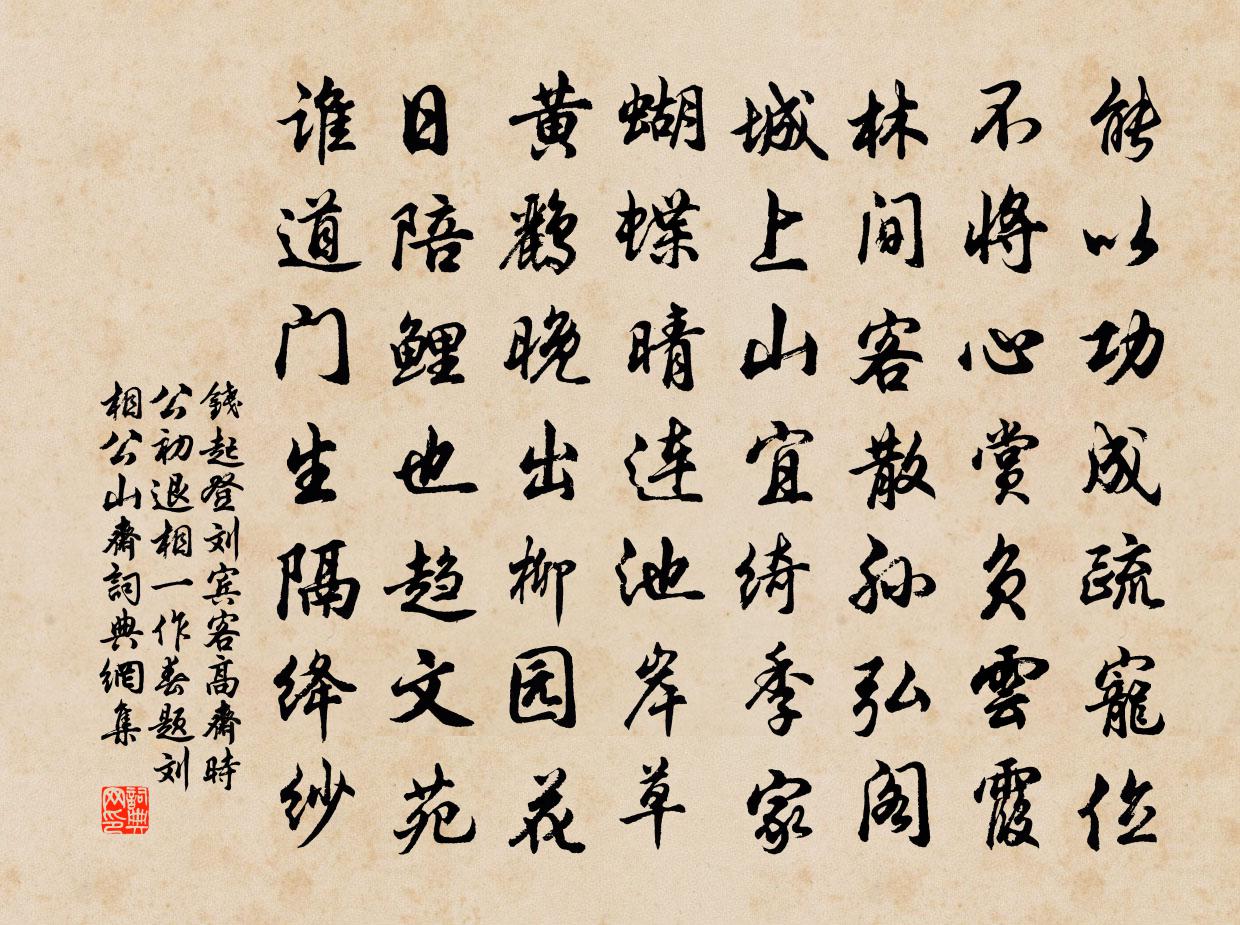 能以功成疏寵位
不將心赏负雲霞
林间客散孙弘阁
城上山宜绮季家
蝴蝶晴连池岸草
黄鹂晚出柳园花
日陪鲤也趋文苑
谁道门生隔绛纱
錢起登刘宾客高齋時
公初退相一作春题刘
相公山齋詞典網集
詞典网印